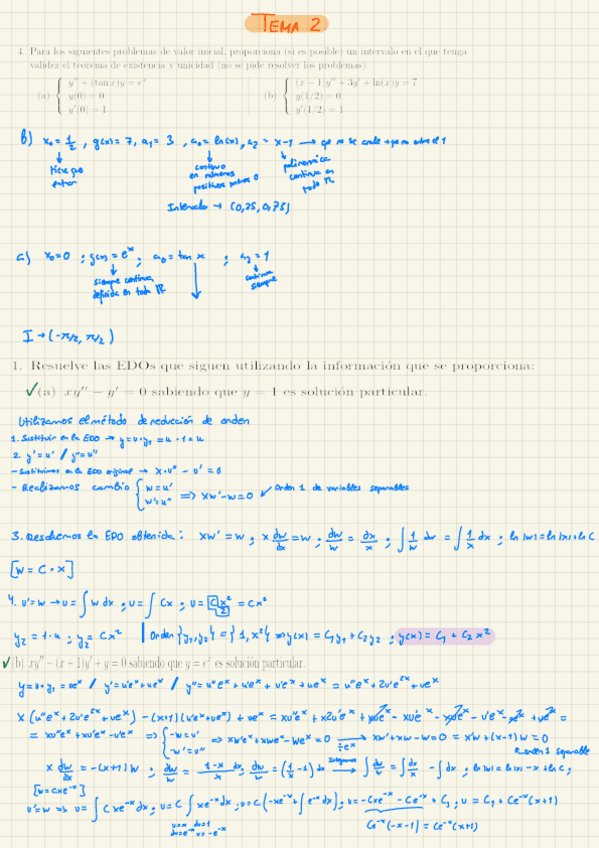 TEMA 2
4. Para los siguientes problemas de valor inicial, proporciona (si es posible) un intervalo en el que tenga
validez el teorema de existencia y unicidad (no se pide resolver los problemas):
(a) { y'' + (tan x)y = eˣ
y(0) = 0
y'(0) = 1
(b) { (x − 1)y'' + 3y' + ln(x)y = 7
y(1/2) = 0
y'(1/2) = 1
b) x₀ = 1/2 , g(x) = 7, a₁ = 3 , a₀ = ln(x), a₂ = x-1 → que no se anule → que no entre el 1
tiene que entrar
continuo en números positivos menos 0
polinómica continua en todo ℝ
Intervalo → (0,25, 0,75)
a) x₀=0 ; g(x) = eˣ ; a₀ = tan x ; a₂ = 1
siempre continua, definida en todo ℝ
continua siempre
I → (-π/2, π/2)
1. Resuelve las EDOs que siguen utilizando la información que se proporciona:
✓(a) xy'' − y' = 0 sabiendo que y = 1 es solución particular.
Utilizamos el método de reducción de orden
1. Sustituir en la EDO → y = u·y₁ = u · 1 = u
2. y' = u' / y'' = u''
- Sustituimos en la EDO original → x·u'' - u' = 0
- Realizamos cambio { w = u'
w' = u'' ⇒ xw' - w = 0 ✓ Orden 1 de variables separables
3. Resolvemos la EDO obtenida: xw' = w ; x dw/dx = w ; dw/w = dx/x ; ∫ 1/w dw = ∫ 1/x dx ; ln|w| = ln|x| + ln C
[w = C · x]
4. u' = w → u = ∫ w dx ; u = ∫ Cx ; u = C x²/2 = Cx²
y₂ = 1·u ; y₂ = Cx² | Orden {y₁,y₂} = {1, x²} ⇒ y(x) = C₁y₁ + C₂y₂ ; y(x) = C₁ + C₂ x²
✓(b) xy'' − (x + 1)y' + y = 0 sabiendo que y = eˣ es solución particular.
y = u · y₁ = ueˣ / y' = u'eˣ + ueˣ / y'' = u''eˣ + u'eˣ + u'eˣ + ueˣ = u''eˣ + 2u'eˣ + ueˣ
x(u''eˣ + 2u'eˣ + ueˣ) - (x+1)(u'eˣ + ueˣ) + ueˣ = xu''eˣ + x2u'eˣ + xueˣ - xu'eˣ - xueˣ - u'eˣ - ueˣ + ueˣ =
= xu''eˣ + xu'eˣ - u'eˣ ⇒ { w = u'
w' = u'' ⇒ xw'eˣ + xweˣ - weˣ = 0 → xw' + xw - w = 0 ⇒ xw' + (x-1)w = 0
÷eˣ
orden 1 separable
x dw/dx = -(x+1)w ; dw/w = 1-x/x dx ; dw/w = (1/x - 1) dx Integramos → ∫ dw/w = ∫ dx/x - ∫ dx ; ln|w| = ln|x| - x + ln C ;
[w = Cxe⁻ˣ]
u' = w ⇒ u = ∫ Cxe⁻ˣ dx ; u = C ∫ xe⁻ˣ dx ; u = C (-xe⁻ˣ + ∫ e⁻ˣ dx) ; u = -Cxe⁻ˣ - Ce⁻ˣ + C₁ ; u = C₁ + Ce⁻ˣ(x+1)
u = x du = 1
dv = e⁻ˣ v = -e⁻ˣ
Ce⁻ˣ(-x-1) = Ce⁻ˣ(x+1)